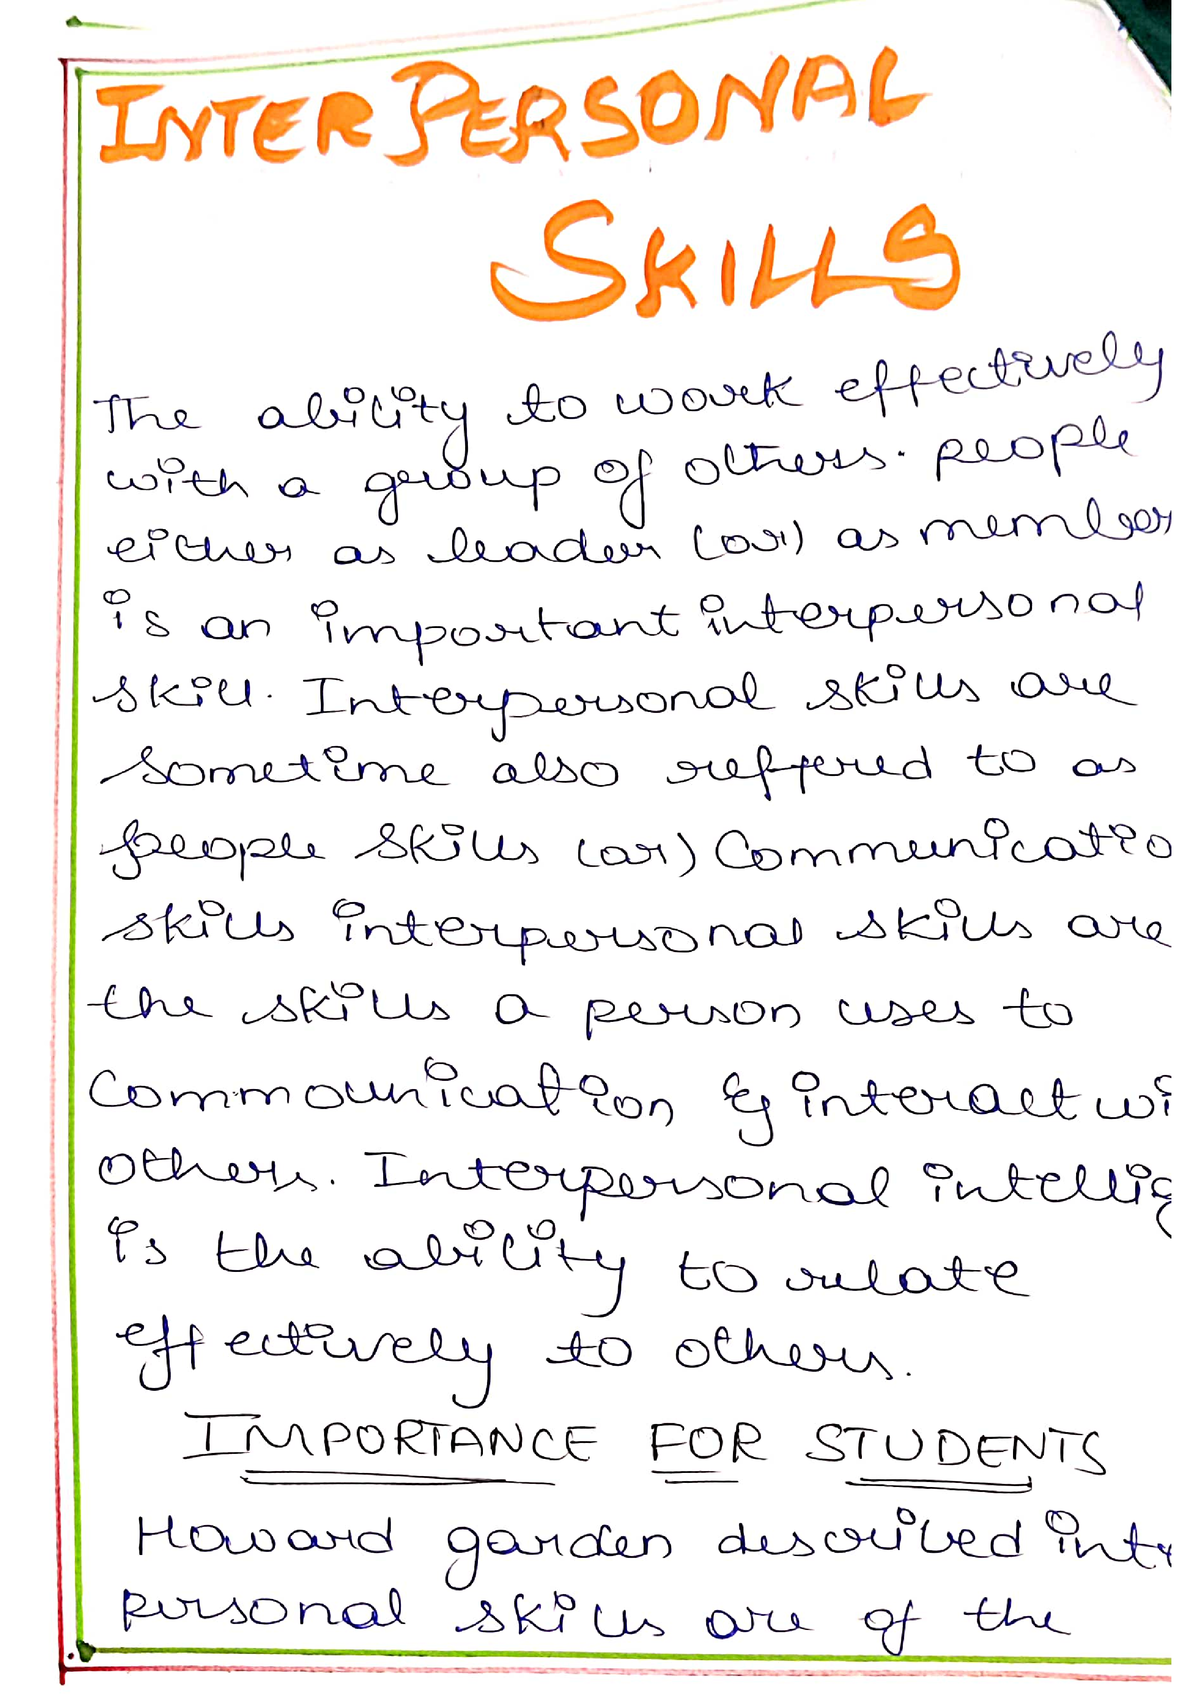 INTERPERSONAL
SKILLS
The ability to work effectively
with a group of others. people
either as leader (or) as member
is an important interpersonal
skill. Interpersonal skills are
sometime also reffered to as
people skills (or) Communicatio
skills interpersonal skills are
the skills a person uses to
Commounication & interact wi
others. Interpersonal intellig
is the ability to relate
effectively to others.
IMPORTANCE FOR STUDENTS
Howard garden described inte
personal skills are of the